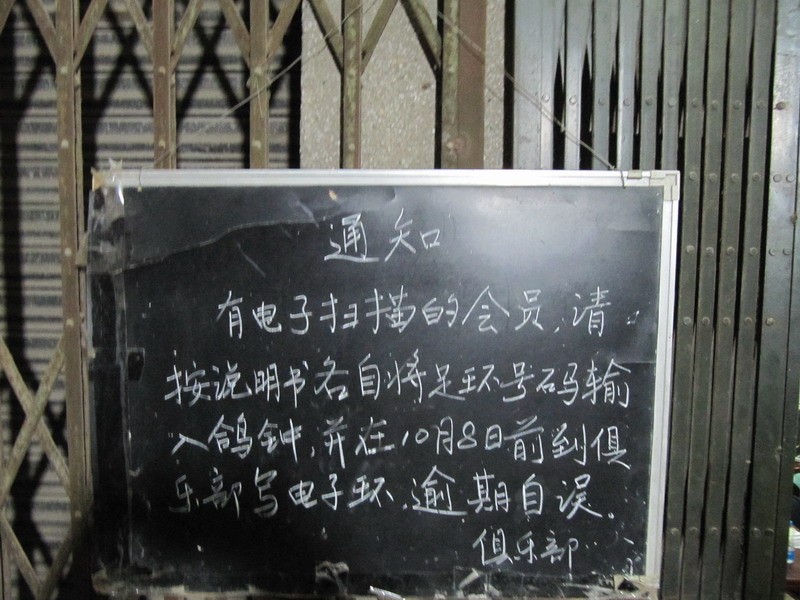 通知
有电子扫描的会员,请
按说明书各自将足环号码输
入鸽钟,并在10月8日前到俱
乐部写电子环,逾期自误。
俱乐部